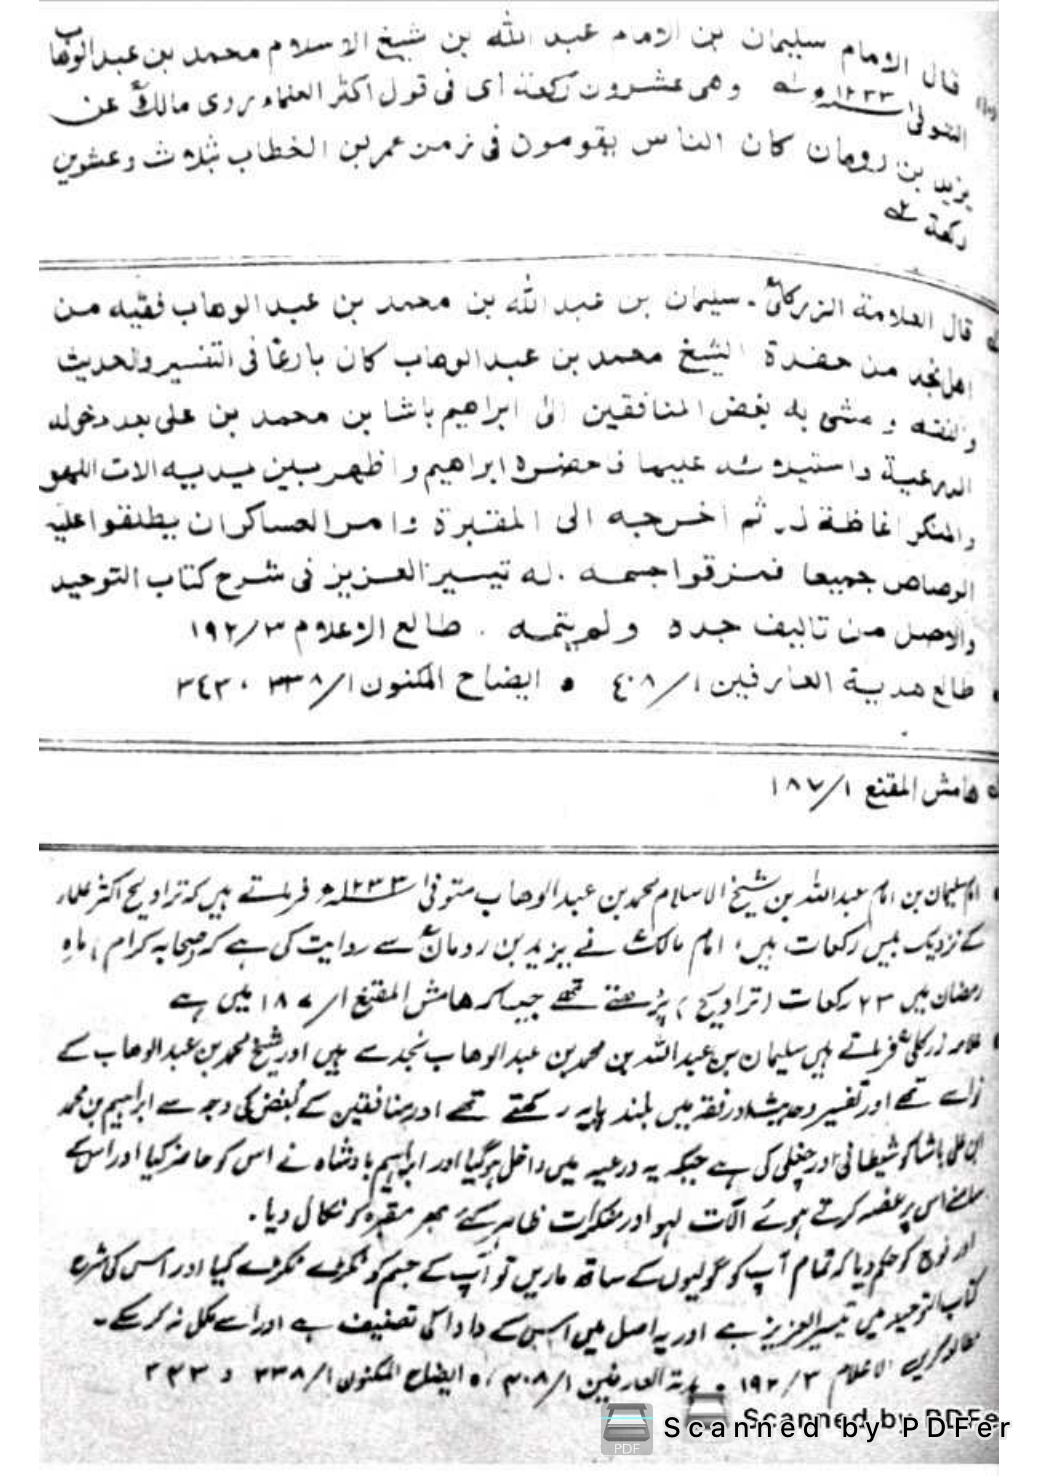 قال الامام سليمان بن الامام عبد الله بن شيخ الاسلام محمد بن عبدالوهاب
المتوفى ١٢٣٣ھ وهى عشرون ركعة اى فى قول اكثر العلماء روى مالكؒ عن
يزيد بن رومان كان الناس يقومون فى زمن عمر بن الخطاب بثلاث وعشرين
ركعة
قال العلامة الزركلىؒ ـ سليمان بن عبد الله بن محمد بن عبد الوهاب فقيه من
اهل نجد من حفدة الشيخ محمد بن عبد الوهاب كان بارعا فى التفسير والحديث
والفقه و مشى به بعض المنافقين الى ابراهيم باشا بن محمد بن على بعد دخوله
الدرعية واستيلائه عليها فاحضره ابراهيم و اظهر بين يديه الات اللهو
والمنكر اغاظة له ثم اخرجه الى المقبرة وامر العساكر ان يطلقوا عليه
الرصاص جميعا فمزقوا جسمه . له تيسير العزيز فى شرح كتاب التوحيد
والاصل من تاليف جده ولم يتمه . طالع الاعلام ١٩٢/٣
طالع هدية العارفين ٤٠٨/١ • ايضاح المكنون ٣٣٨/١ ، ٣٤٣
هامش المقنع ١٨٧/١
امام سلیمان بن امام عبداللہ بن شیخ الاسلام محمد بن عبدالوھاب متوفی ۱۲۳۳ھ فرماتے ہیں کہ تراویح اکثر علماء
کے نزدیک بیس رکعات ہیں، امام مالکؒ نے یزید بن رومانؒ سے روایت کی ہے کہ صحابہ کرام ماہِ
رمضان میں ۲۳ رکعات (تراویح) پڑھتے تھے جیسا کہ ھامش المقنع ۱/ ۱۸۷ میں ہے
علامہ زرکلیؒ فرماتے ہیں سلیمان بن عبداللہ بن محمد بن عبدالوھاب نجد سے ہیں اور شیخ محمد بن عبدالوھاب کے
نواسے تھے اور تفسیر وحدیث اور فقہ میں بلند پایہ رکھتے تھے اور منافقین کے بُغض کی وجہ سے ابراہیم بن محمد
ابن علی باشا کو شیطانی اور چغلی کی ہے جبکہ یہ درعیہ میں داخل ہوگیا اور ابراہیم بادشاہ نے اس کو حاضر کیا اور اس کے
سامنے اس پر غصہ کرتے ہوئے آلات لہو اور منکرات ظاہر کئے پھر مقبرہ کو نکال دیا۔
اور فوج کو حکم دیا کہ تمام آپ کو گولیوں کے ساتھ ماریں تو آپ کے جسم کو ٹکڑے ٹکڑے کیا اور اس کی شرح
کتاب التوحید میں تیسیر العزیز ہے اور یہ اصل میں اس کے دادا کی تصنیف ہے اور اسے مکمل نہ کر سکے۔
مطالعہ کریں الاعلام ۱۹۲/۳ • ہدیۃ العارفین ۴۰۸/۱، • ایضاح المکنون ۳۳۸/۱ و ۳۴۳
Scanned by PDFer
PDF Scanned by PDFer